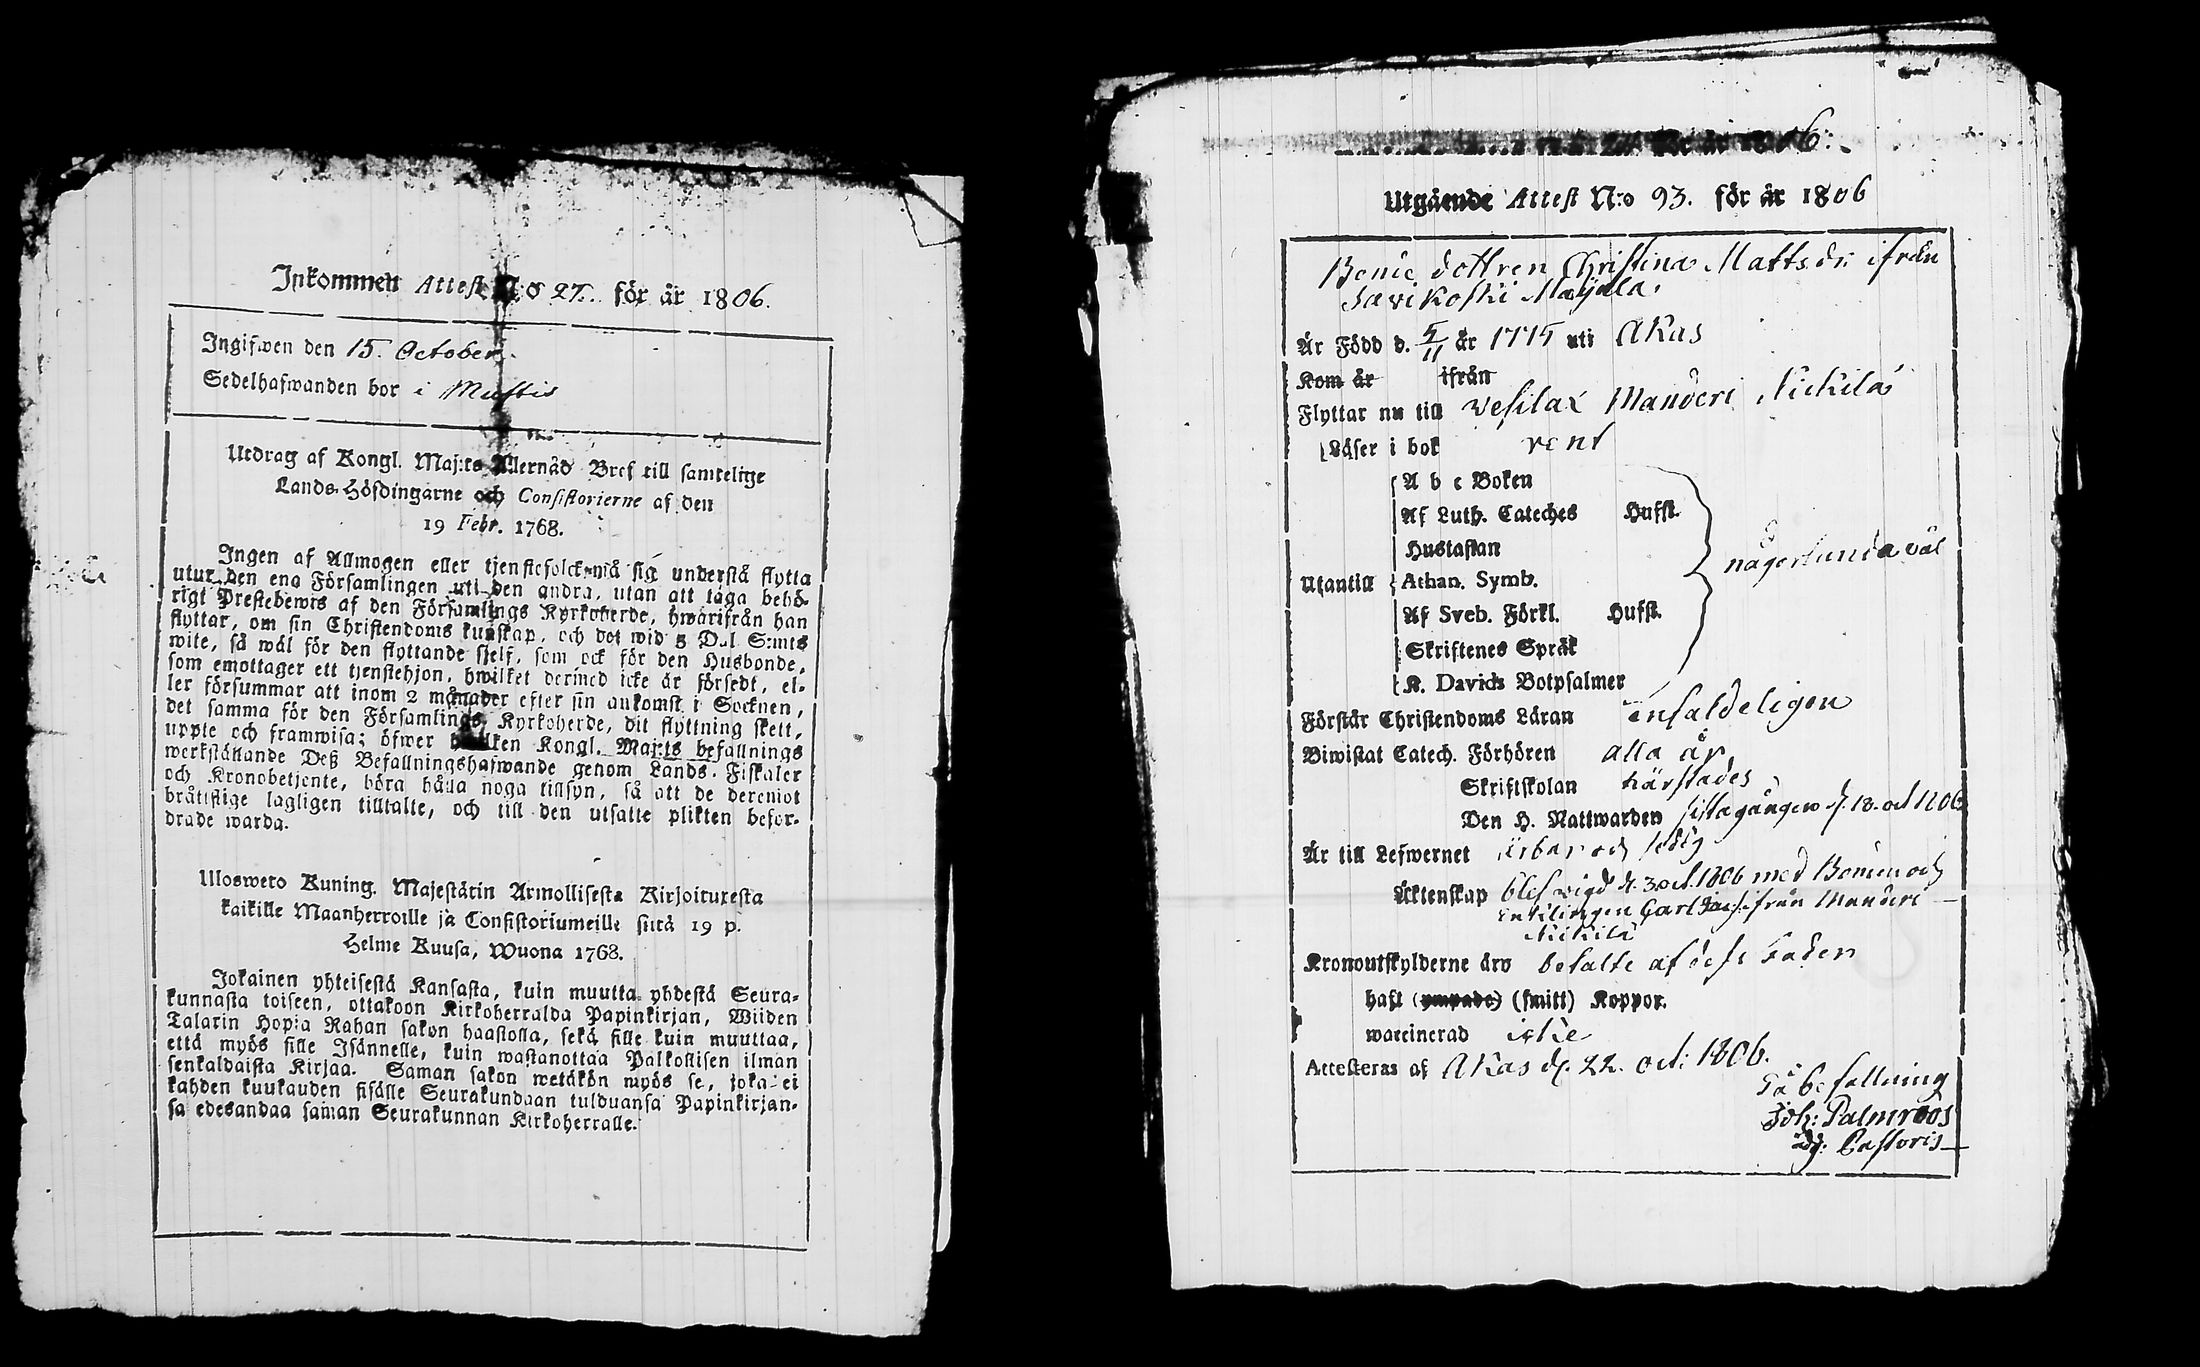 Inkommen Attest N:o 27. för år 1806.
Ingifwen den 15. October.
Sedelhafwanden bor i Mustis
Utdrag af Kongl. Maj:ts Allernåd Bref till samtelige
Lands-Höfdingarne och Consistorierne af den
19 Febr. 1768.
Ingen af Allmogen eller tjenstefolck må sig understå flytta
utur den ena Församlingen uti den andra, utan att taga behö-
rigt Prestebewis af den Församlings Kyrkoherde, hwarifrån han
flyttar, om sin Christendoms kunskap, och det wid 5 Dal S:mts
wite, så wäl för den flyttande sjelf, som ock för den Husbonde,
som emottager ett tjenstehjon, hwilket dermed icke är försedt, el-
ler försummar att inom 2 månader efter sin ankomst i Socknen,
det samma för den Församlings Kyrkoherde, dit flyttning skett,
uppte och framwisa; öfwer hwilken Kongl. Maj:ts befallnings
werkställande Deß Befallningshafwande genom Lands-Fiskaler
och Kronobetjente, böra hålla noga tillsyn, så att de deremot
bråttslige lagligen tilltalte, och till den utsatte plikten befor-
drade warda.
Uloswero Kuning. Majestätin Armollisesta Kirjoituxesta
kaikille Maanherroille ja Consistoriumeille siitä 19 p.
Helme Kuusa, Wuona 1768.
Jokainen yhteisestä Kansasta, kuin muutta yhdestä Seura-
kunnasta toiseen, ottakoon Kirkoherralda Papinkirjan, Wiiden
Talarin Hopia Rahan sakon haastolla, sekä sille kuin muuttaa,
että myös sille Isännelle, kuin wastanottaa Palkollisen ilman
senkaldaista Kirjaa. Saman sakon wetäkön myös se, joka ei
kahden kuukauden sisälle Seurakundaan tulduansa Papinkirjan-
sa edesandaa saman Seurakunnan Kirkoherralle.
för år 1806:
Utgående Attest N:o 93. för år 1806
Bonde dottren Christina Mattsdr: ifrån
Savikoski Maijala.
Är Född d. 5/11 år 1775 uti Akas
Kom år ifrån
Flyttar nu till Vesilax Manderi Nickilä
Läser i bok rent
A b c Boken
Af Luth. Cateches Hufst.
Hustaflan
Utantill Athan. Symb. någorlunda väl
Af Sveb. Förkl. Hufst.
Skriftenes Språk
K. Davids Botpsalmer
Förstår Christendoms Läran enfaldeligen
Biwistat Catech. Förhören alla år,
Skriftskolan härstädes
Den H. Nattwarden sista gången d. 18. oct 1806
Är till Lefwernet ärbar och sedig
Äktenskap blef vigd d. 3 oct. 1806 med Bonden och
Enklingen Carl ifrån Manderi
Nikilä
Kronoutskylderne äro betalte af dess Fader
haft (ympade) (smitt) Koppor.
waccinerad icke
Attesteras af Akas d. 22. oct: 1806.
På befallning
Joh: Palmroos
Adj: Pastoris